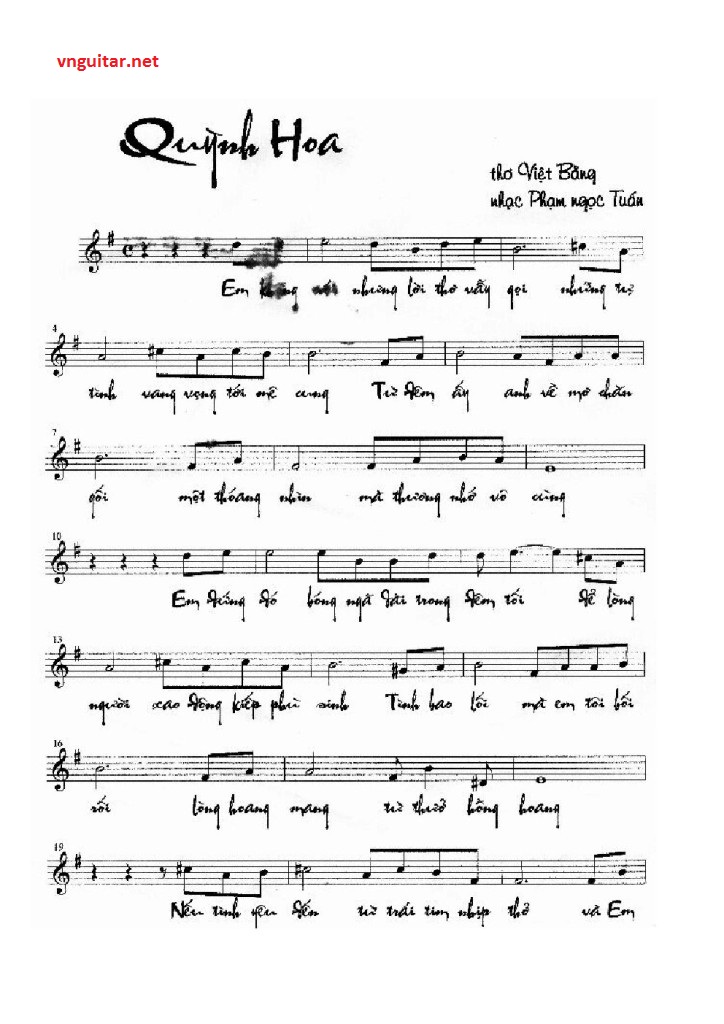 vnguitar.net
Quỳnh Hoa
thơ Việt Bằng
nhạc Phạm ngọc Tuấn
Em không nói nhưng lời thơ vẫy gọi những tự
4
tình vang vọng tới mê cung Từ đêm ấy anh về mơ chăn
7
gối một thoáng nhìn mà thương nhớ vô cùng
10
Em đứng đó bóng ngã dài trong đêm tối để lòng
13
người xao động kiếp phù sinh Tình bao lối mà em tôi bối
16
rối lòng hoang mang từ thưở hồng hoang
19
Nếu tình yêu đến từ trái tim nhịp thở và Em